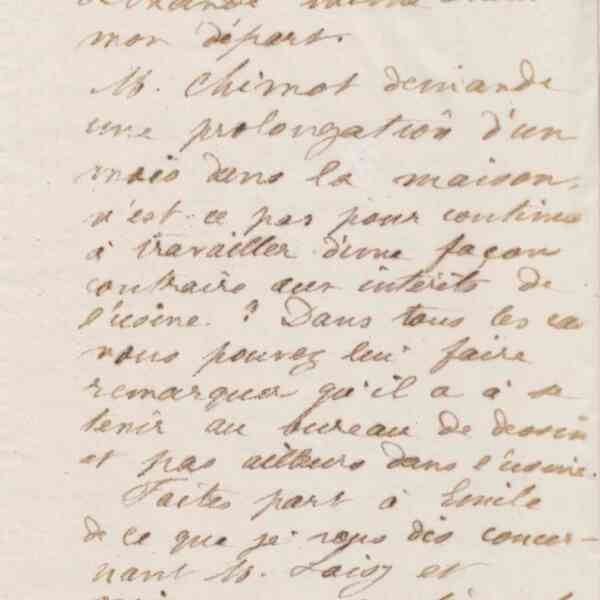 mon départ.
M. Chimot demande
une prolongation d'un
mois dans la maison,
n'est-ce pas pour continuer
à travailler d'une façon
contraire aux intérêts de
l'usine ? Dans tous les cas
vous pouvez lui faire
remarquer qu'il a à se
tenir au bureau de dessin
et pas ailleurs dans l'usine.
Faites part à Emile
de ce que je vous dis concer-
nant M. et